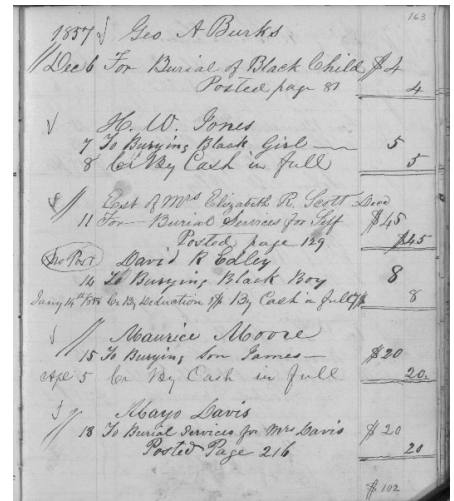 163
1857 √ Geo A Burks
Dec 6 For Burial of Black Child $4
Posted page 81 4
√ H. W. Jones
7 To Burying Black Girl 5
8 Cr By Cash in full 5
Est of Mrs Elizabeth R. Scott Decd
11 For Burial Services for Self $45
Posted page 129 $45
No Post David R Edley
14 To Burying Black Boy 8
Jany 14th 1858 Cr By Deduction By Cash in full 8
√ Maurice Moore
15 To Burying Son James $20
Apl 5 Cr By Cash in full 20
Mayo Davis
18 To Burial Services for Mrs Davis $20
Posted Page 216 20
$102